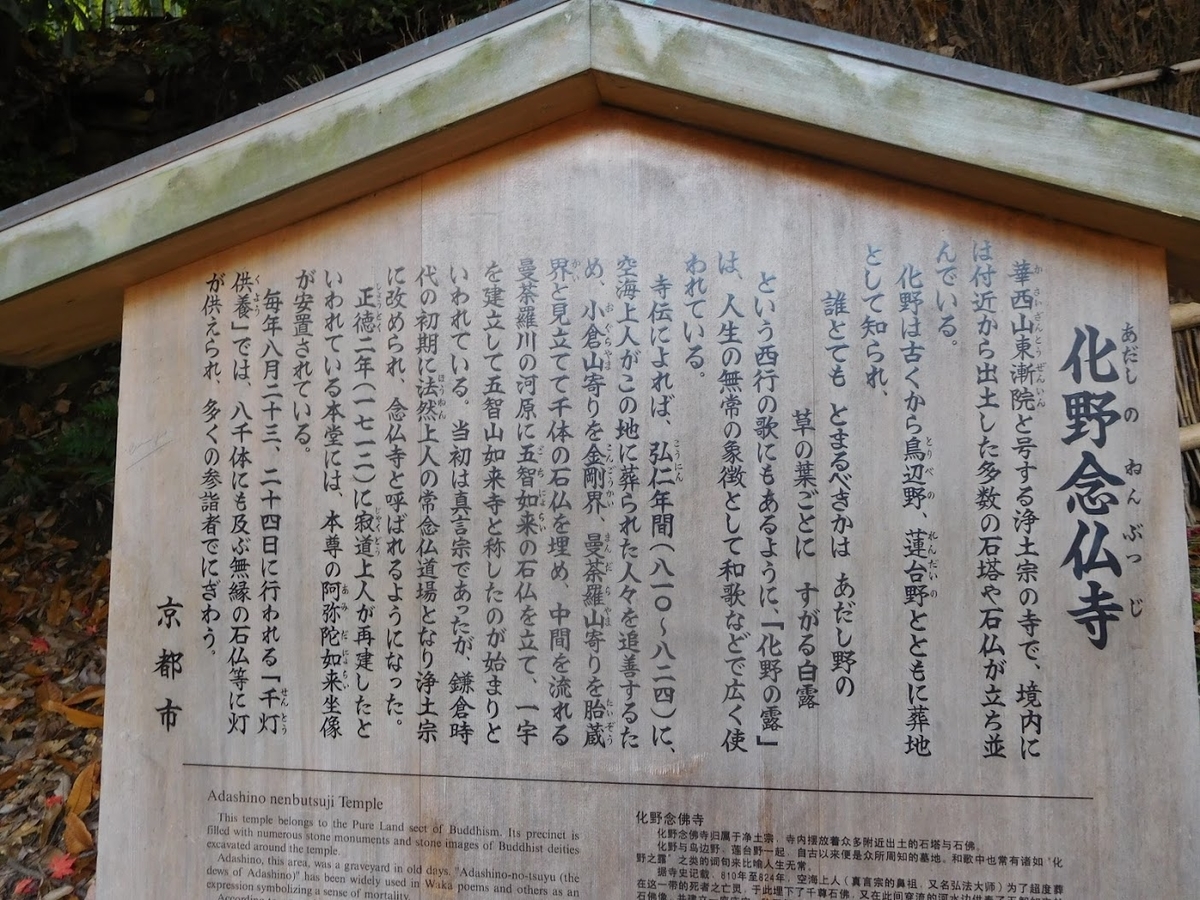 化野念仏寺
あだしの ねんぶつじ
華西山東漸院と号する浄土宗の寺で、境内に
かさいざんとうぜんいん
は付近から出土した多数の石塔や石仏が立ち並
んでいる。
化野は古くから鳥辺野、蓮台野とともに葬地
とりべの れんだいの
として知られ、
誰とても とまるべきかは あだし野の
草の葉ごとに すがる白露
という西行の歌にもあるように、「化野の露」
は、人生の無常の象徴として和歌などで広く使
われている。
寺伝によれば、弘仁年間(八一〇〜八二四)に、
こうにん
空海上人がこの地に葬られた人々を追善するた
め、小倉山寄りを金剛界、曼荼羅山寄りを胎蔵
おぐらやま こんごうかい まんだらやま たいぞう
界と見立てて千体の石仏を埋め、中間を流れる
かい
曼荼羅川の河原に五智如来の石仏を立て、一宇
ごちにょらい
を建立して五智山如来寺と称したのが始まりと
いわれている。当初は真言宗であったが、鎌倉時
代の初期に法然上人の常念仏道場となり浄土宗
ほうねん
に改められ、念仏寺と呼ばれるようになった。
正徳二年(一七一二)に寂道上人が再建したと
しょうとく じゃくどう
いわれている本堂には、本尊の阿弥陀如来坐像
あみだにょらい
が安置されている。
毎年八月二十三、二十四日に行われる「千灯
せんとう
供養」では、八千体にも及ぶ無縁の石仏等に灯
くよう
が供えられ、多くの参詣者でにぎわう。
京都市
Adashino nenbutsuji Temple
This temple belongs to the Pure Land sect of Buddhism. Its precinct is
filled with numerous stone monuments and stone images of Buddhist deities
excavated around the temple.
Adashino, this area, was a graveyard in old days. "Adashino-no-tsuyu (the
dews of Adashino)" has been widely used in Waka poems and others as an
expression symbolizing a sense of mortality.
化野念佛寺
化野念佛寺归属于净土宗，寺内摆放着众多附近出土的石塔与石佛。
化野与鸟边野，莲台野一起，自古以来便是众所周知的墓地。和歌中也常有诸如"化
野之露"之类的词句来比喻人生无常。
据寺史记载，810年至824年，空海上人（真言宗的鼻祖，又名弘法大师）为了超度葬
在这一带的死者之亡灵，于此埋下了千尊石佛，